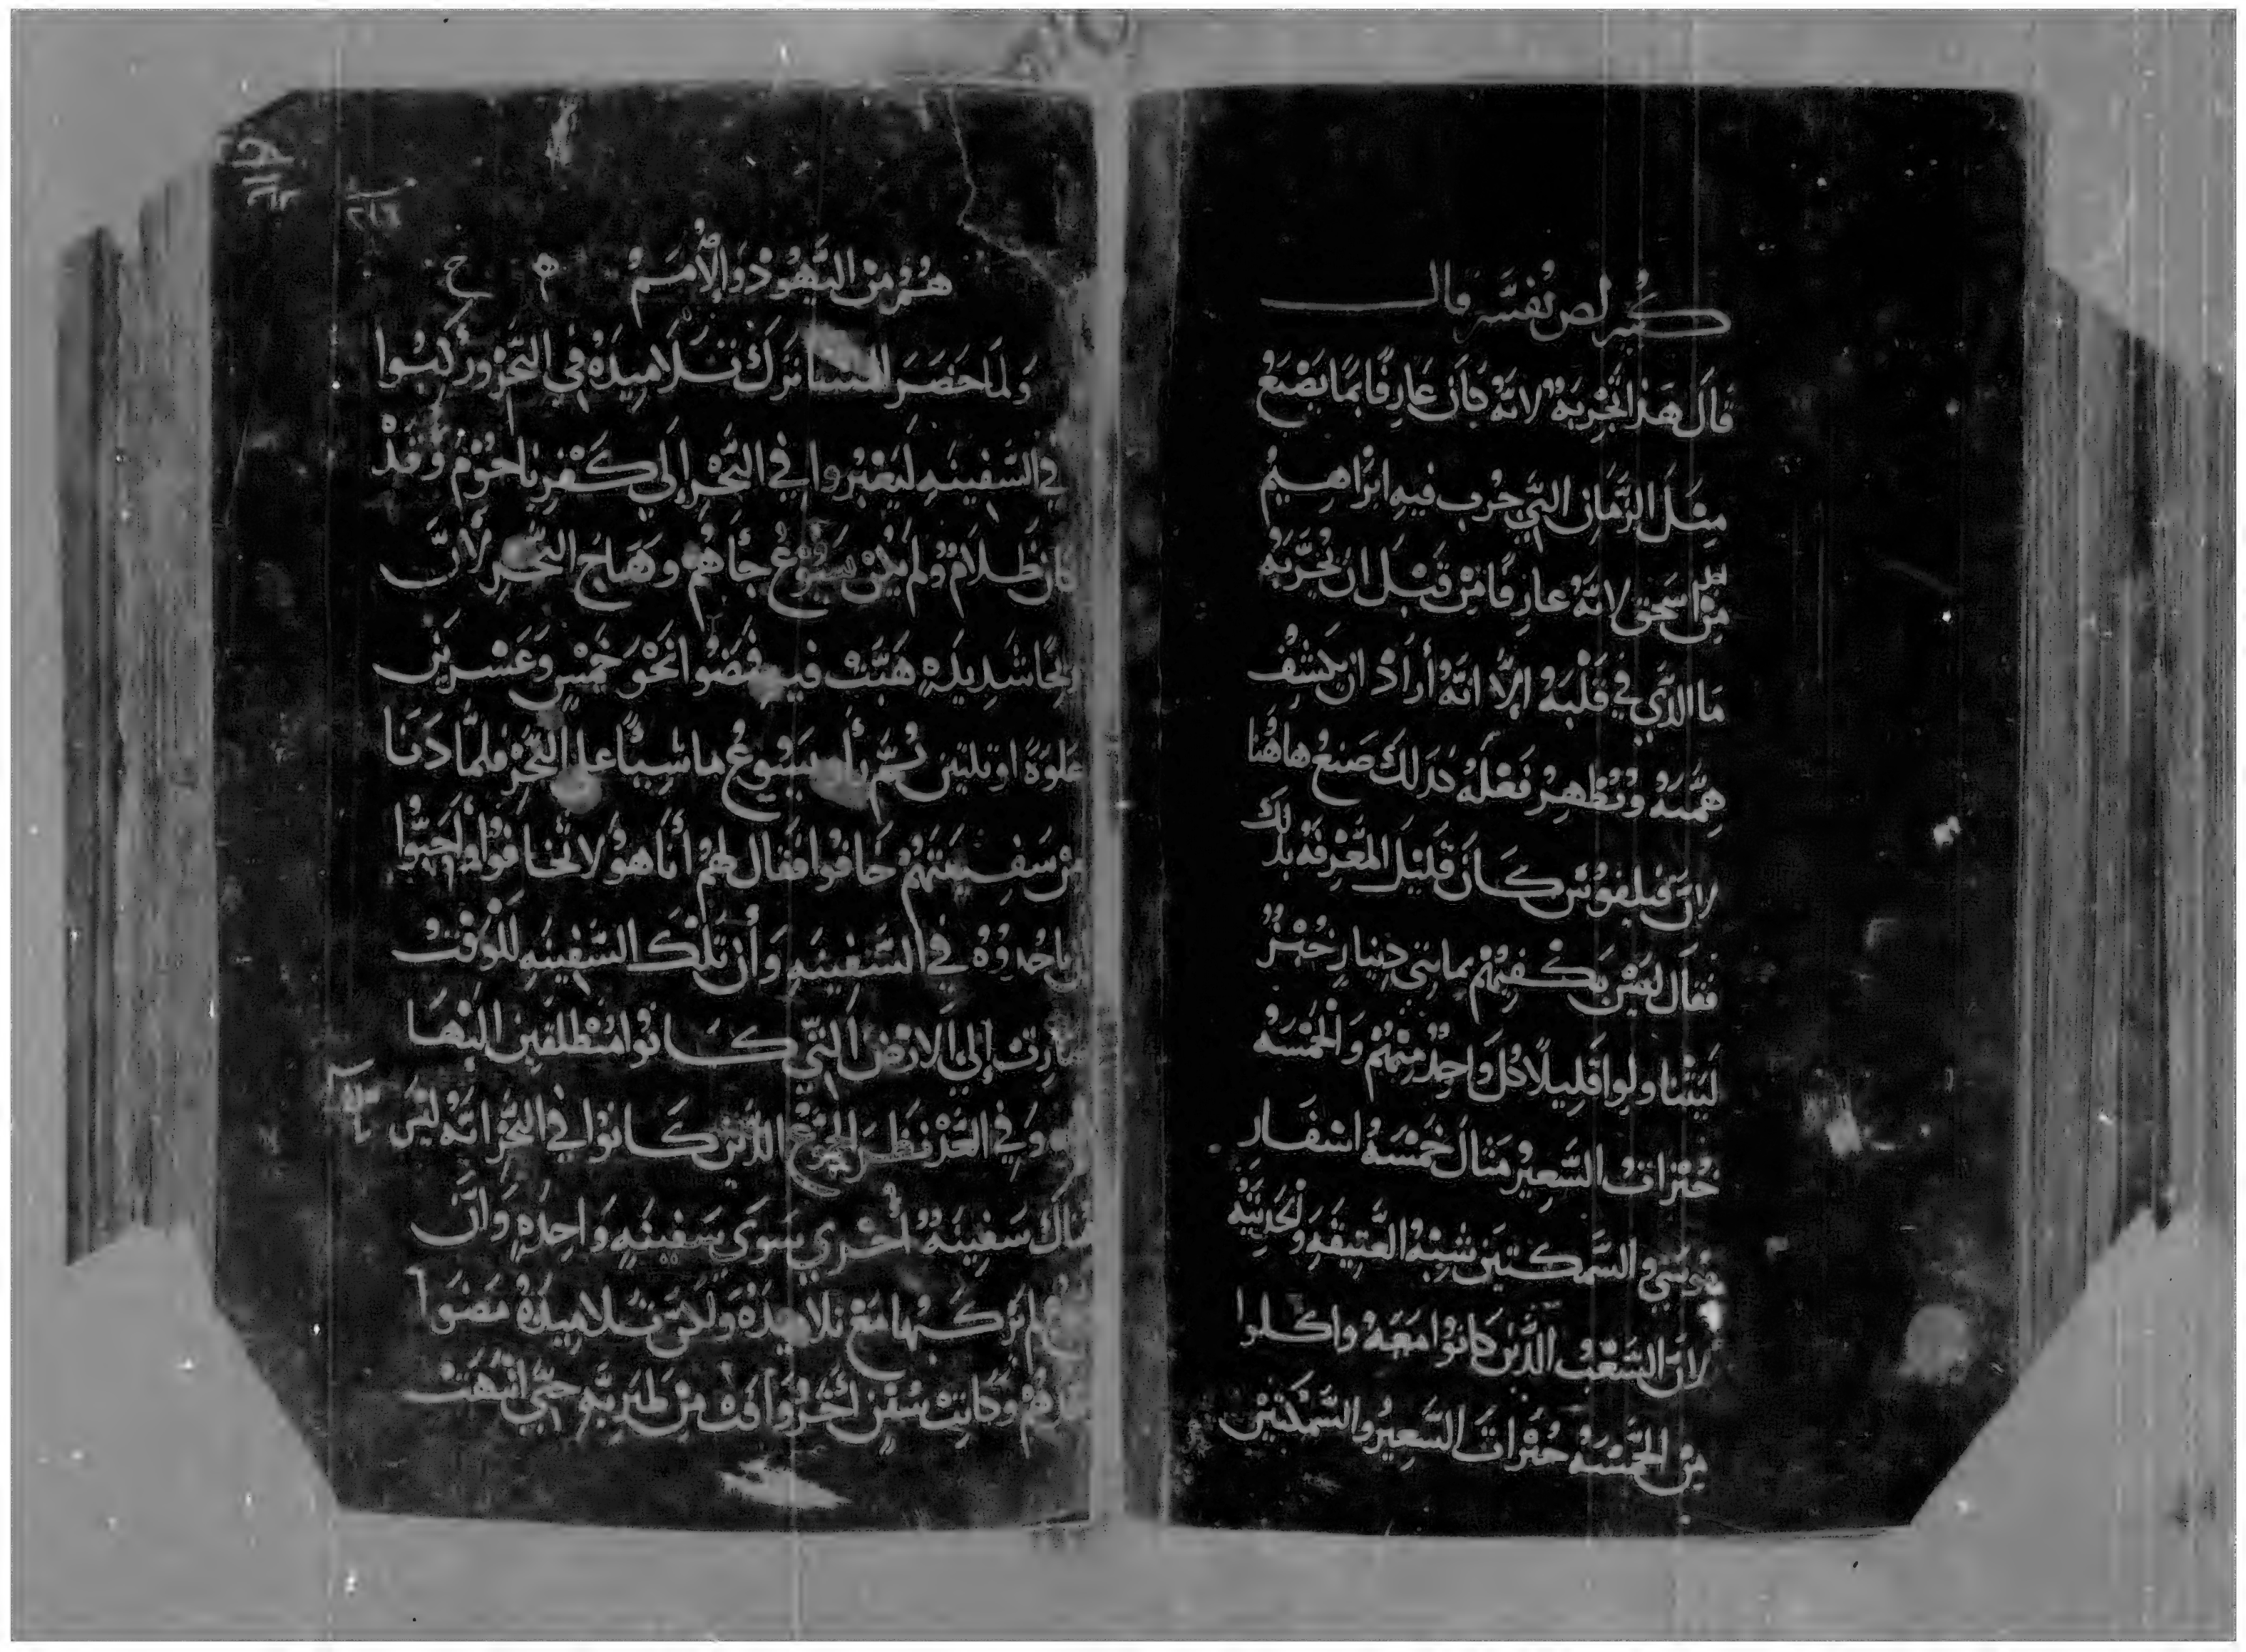 كيرلص نفسه قال
قال هذا تجربة لانه كان عارفا بما يصنع
مثل الزمان التي جرب فيه ابراهيم
من اسحق لانه عارفا من قبل ان يجربه
ما الذي في قلبه إلا انه أراد ان يكشف
همته وتظهر فعله كذلك صنع هاهنا
لان فيلبوس كان قليل المعرفه بذلك
فقال ليس يكفيهم بمايتي دينار خبز
ليتنا ولوا قليلا كل واحد منهم والخمسه
خبزات الشعير مثال خمسة اسفار
موسي والسمكتين شبه العتيقه والحديثه
لان الشعب الذين كانوا معه واكلوا
من الخمسه خبزات الشعير والسمكتين
هم من اليهود والأمم
ولما حضر المسا نزل تلاميذه في البحر وركبوا
في السفينه ليعبروا في البحر إلي كفرناحوم وقد
كان ظلام ولم يكن يسوع جأهم وهاج البحر لأن
ريحا شديده هبت فيه فمضوا نحو خمس وعشرين
غلوة او تلتين ثم رأوا يسوع ماشيا علي البحر فلما دنا
من سفينتهم خافوا فقال لهم أنا هو لا تخافوا وأحبوا
ان ياخدوه في السفينه وأن تلك السفينه للوقت
صارت إلي الارض التي كانوا منطلقين اليها
وفي الغد نظر الجمع الذين كانوا في البحر انه ليس
هناك سفينة أخري سوى سفينه واحده وأن
يسوع لم يركبها مع تلاميذه ولكن تلاميذه مضوا
وحدهم وكانت سفن أخر وافت من طبريه حتي انتهت